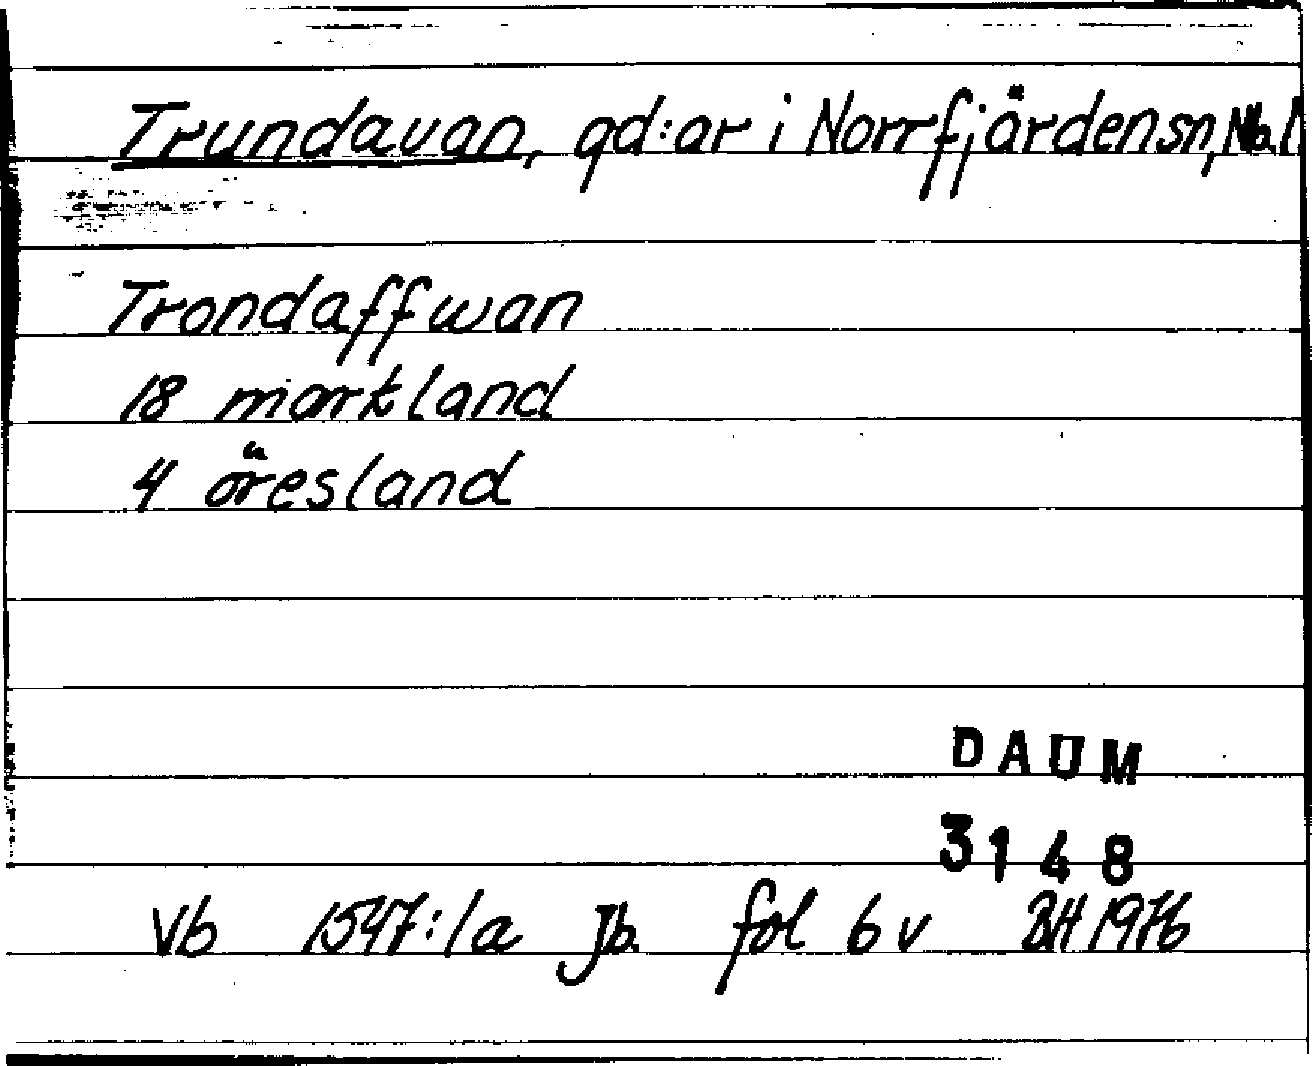 Trundavan, gd:ar i Norrfjärdensn, Nb.
Trondaffwan
18 markland
4 öresland
DAUM
3148
Vb 1547:1a Jb. fol 6 v BH 1976